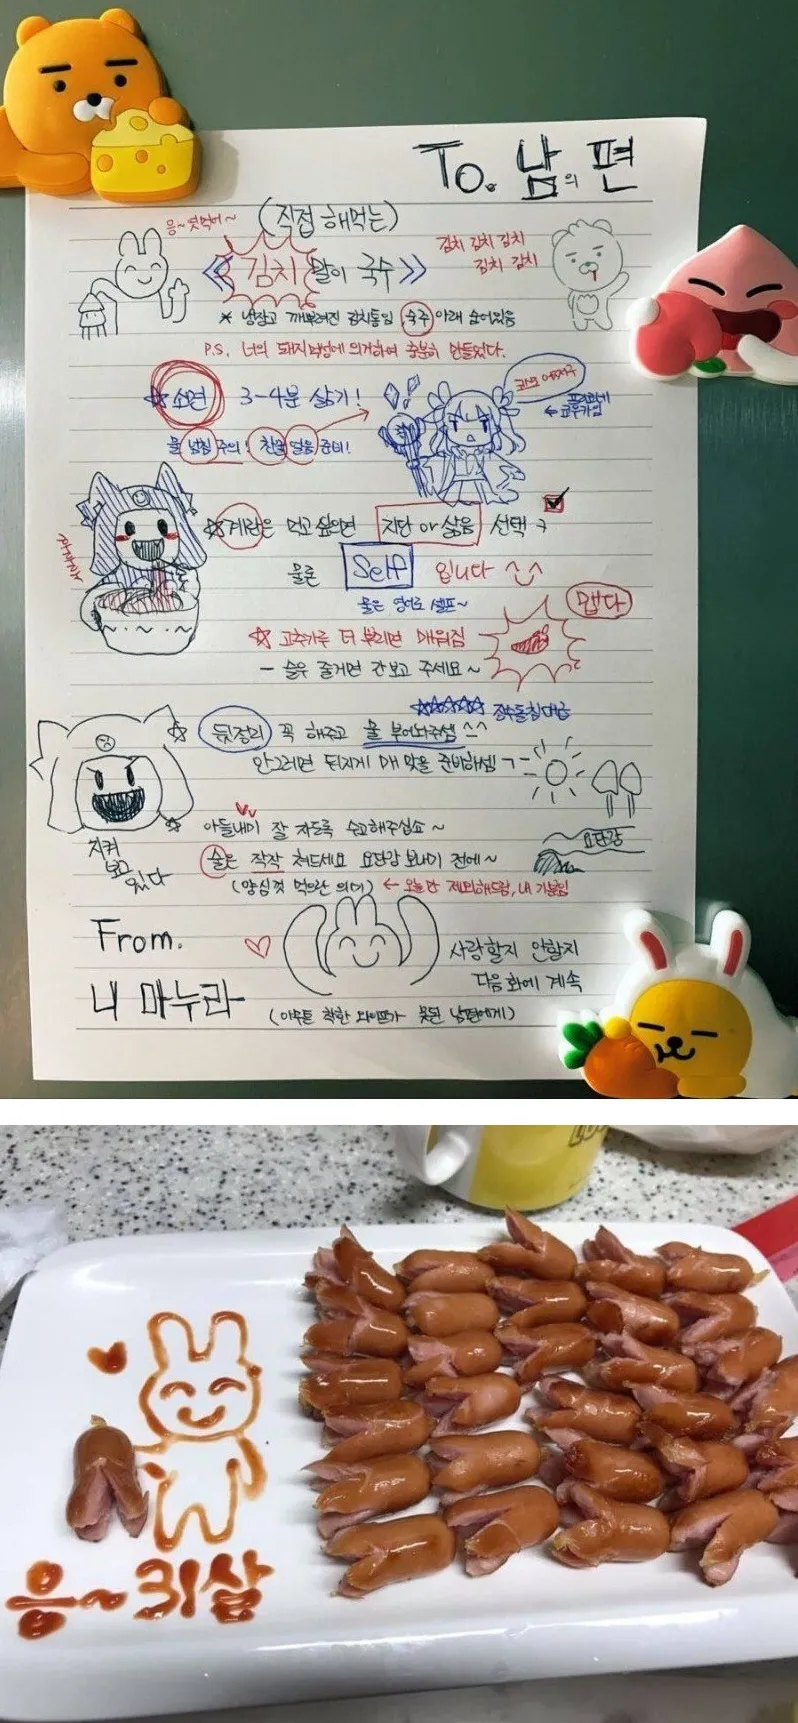 To. 남의 편
응~ 엿먹어~
(직접 해먹는)
《김치 말이 국수》
김치 김치 김치
김치 김치
* 냉장고 깨부려진 김치통임 숙주 아래 숨어있음
P.S. 너의 돼지력에 의거하여 충분히 만들었다.
☆ 소면 3-4분 삶기!
물 넘침 주의! 찬물 얼음 준비!
☆ 계란은 먹고 싶으면 지단 or 삶음 선택
물론 Self 입니다 ^^
물은 영어로 셀프~
맵다
☆ 고추가루 더 뿌리면 매워짐
- 슬우 줄거면 간보고 주세요~
☆ 뒷정리 꼭 해주고 물 부어놔주셈 ^^
안그러면 뒤지게 매 맞을 준비하셈 ㄱ-
☆ 아들내미 잘 자도록 수고해주십쇼~
지켜
보고
있다
술은 작작 쳐드세요 요단강 보내기 전에~
요단강
(양심껏 먹으란 의미) ← 오늘만 제외해드림, 내 기분임
From.
내 마누라
사랑할지 안할지
다음화에 계속
(아무튼 착한 와이프가 못된 남편에게)
응~31살